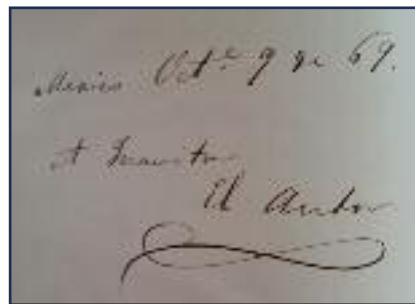 Mexico Oct.e 9 de 69.
A Inocente
El Autor